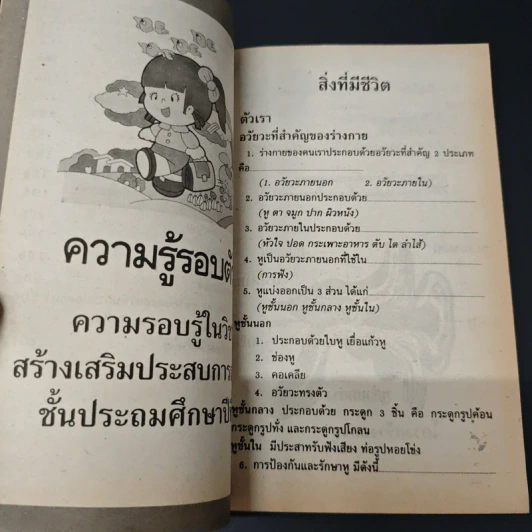 ความรู้รอบตั
ความรอบรู้ในวิช
สร้างเสริมประสบการ
ชั้นประถมศึกษาปี
สิ่งที่มีชีวิต
ตัวเรา
อวัยวะที่สำคัญของร่างกาย
1. ร่างกายของคนเราประกอบด้วยอวัยวะที่สำคัญ 2 ประเภท
คือ
(1. อวัยวะภายนอก 2. อวัยวะภายใน)
2. อวัยวะภายนอกประกอบด้วย
(หู ตา จมูก ปาก ผิวหนัง)
3. อวัยวะภายในประกอบด้วย
(หัวใจ ปอด กระเพาะอาหาร ตับ ไต ลำไส้)
4. หูเป็นอวัยวะภายนอกที่ใช้ใน
(การฟัง)
5. หูแบ่งออกเป็น 3 ส่วน ได้แก่
(หูชั้นนอก หูชั้นกลาง หูชั้นใน)
หูชั้นนอก
1. ประกอบด้วยใบหู เยื่อแก้วหู
2. ช่องหู
3. คอเคลีย
4. อวัยวะทรงตัว
หูชั้นกลาง ประกอบด้วย กระดูก 3 ชิ้น คือ กระดูกรูปค้อน
กระดูกรูปทั่ง และกระดูกรูปโกลน
หูชั้นใน มีประสาทรับฟังเสียง ท่อรูปหอยโข่ง
6. การป้องกันและรักษาหู มีดังนี้